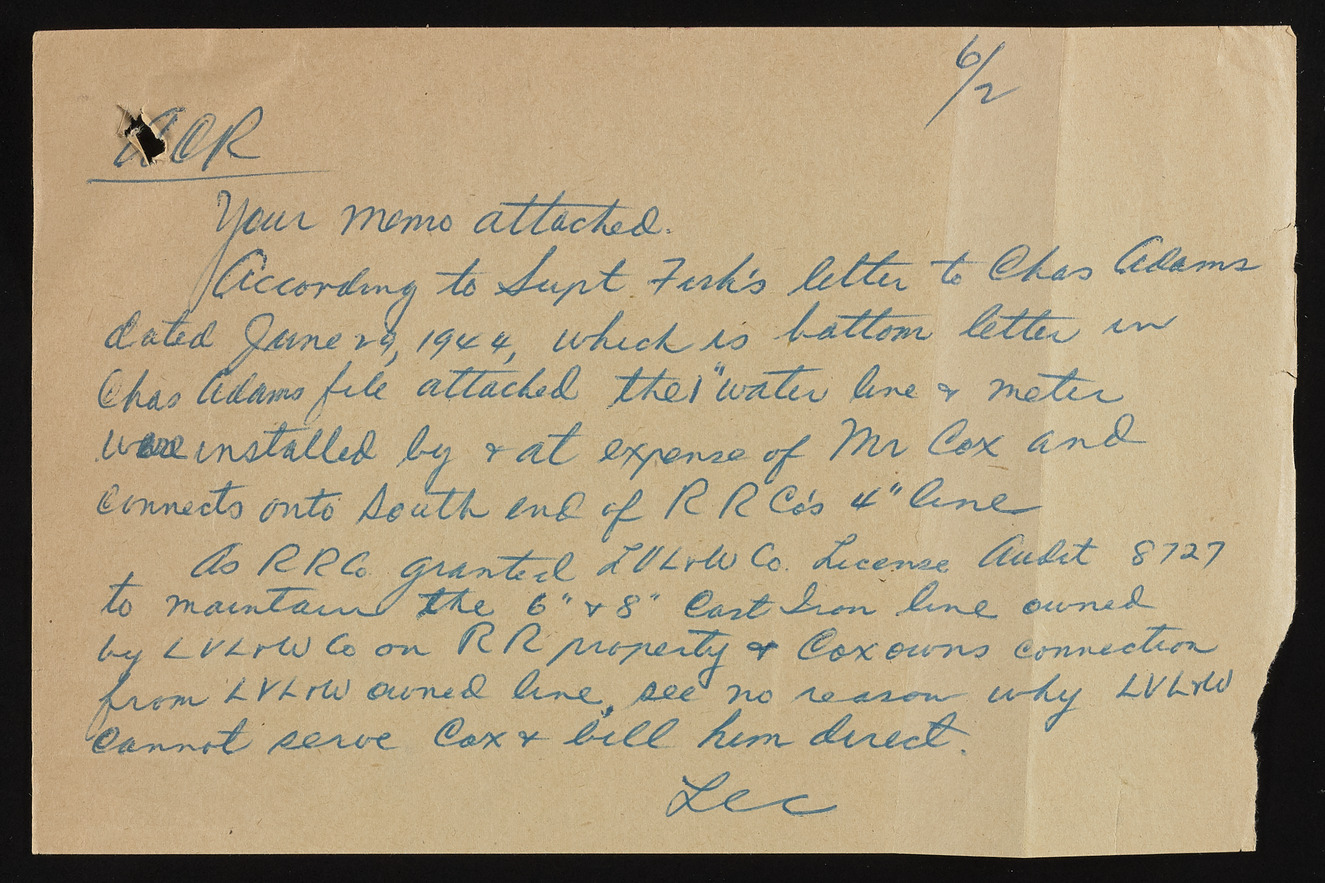 6/2
ACR
Your memo attached.
According to Supt Fisk's letter to Chas Adams
dated June 29, 1944, which is bottom letter in
Chas Adams file attached the 1" water line & meter
were installed by & at expense of Mr Cox and
connects onto south end of R R Co's 4" line
As R R Co. granted LVL&W Co. License Audit 8727
to maintain the 6" & 8" Cast Iron line owned
by LVL&W Co on RR property & Cox owns connection
from LVL&W owned line, see no reason why LVL&W
cannot serve Cox & bill him direct.